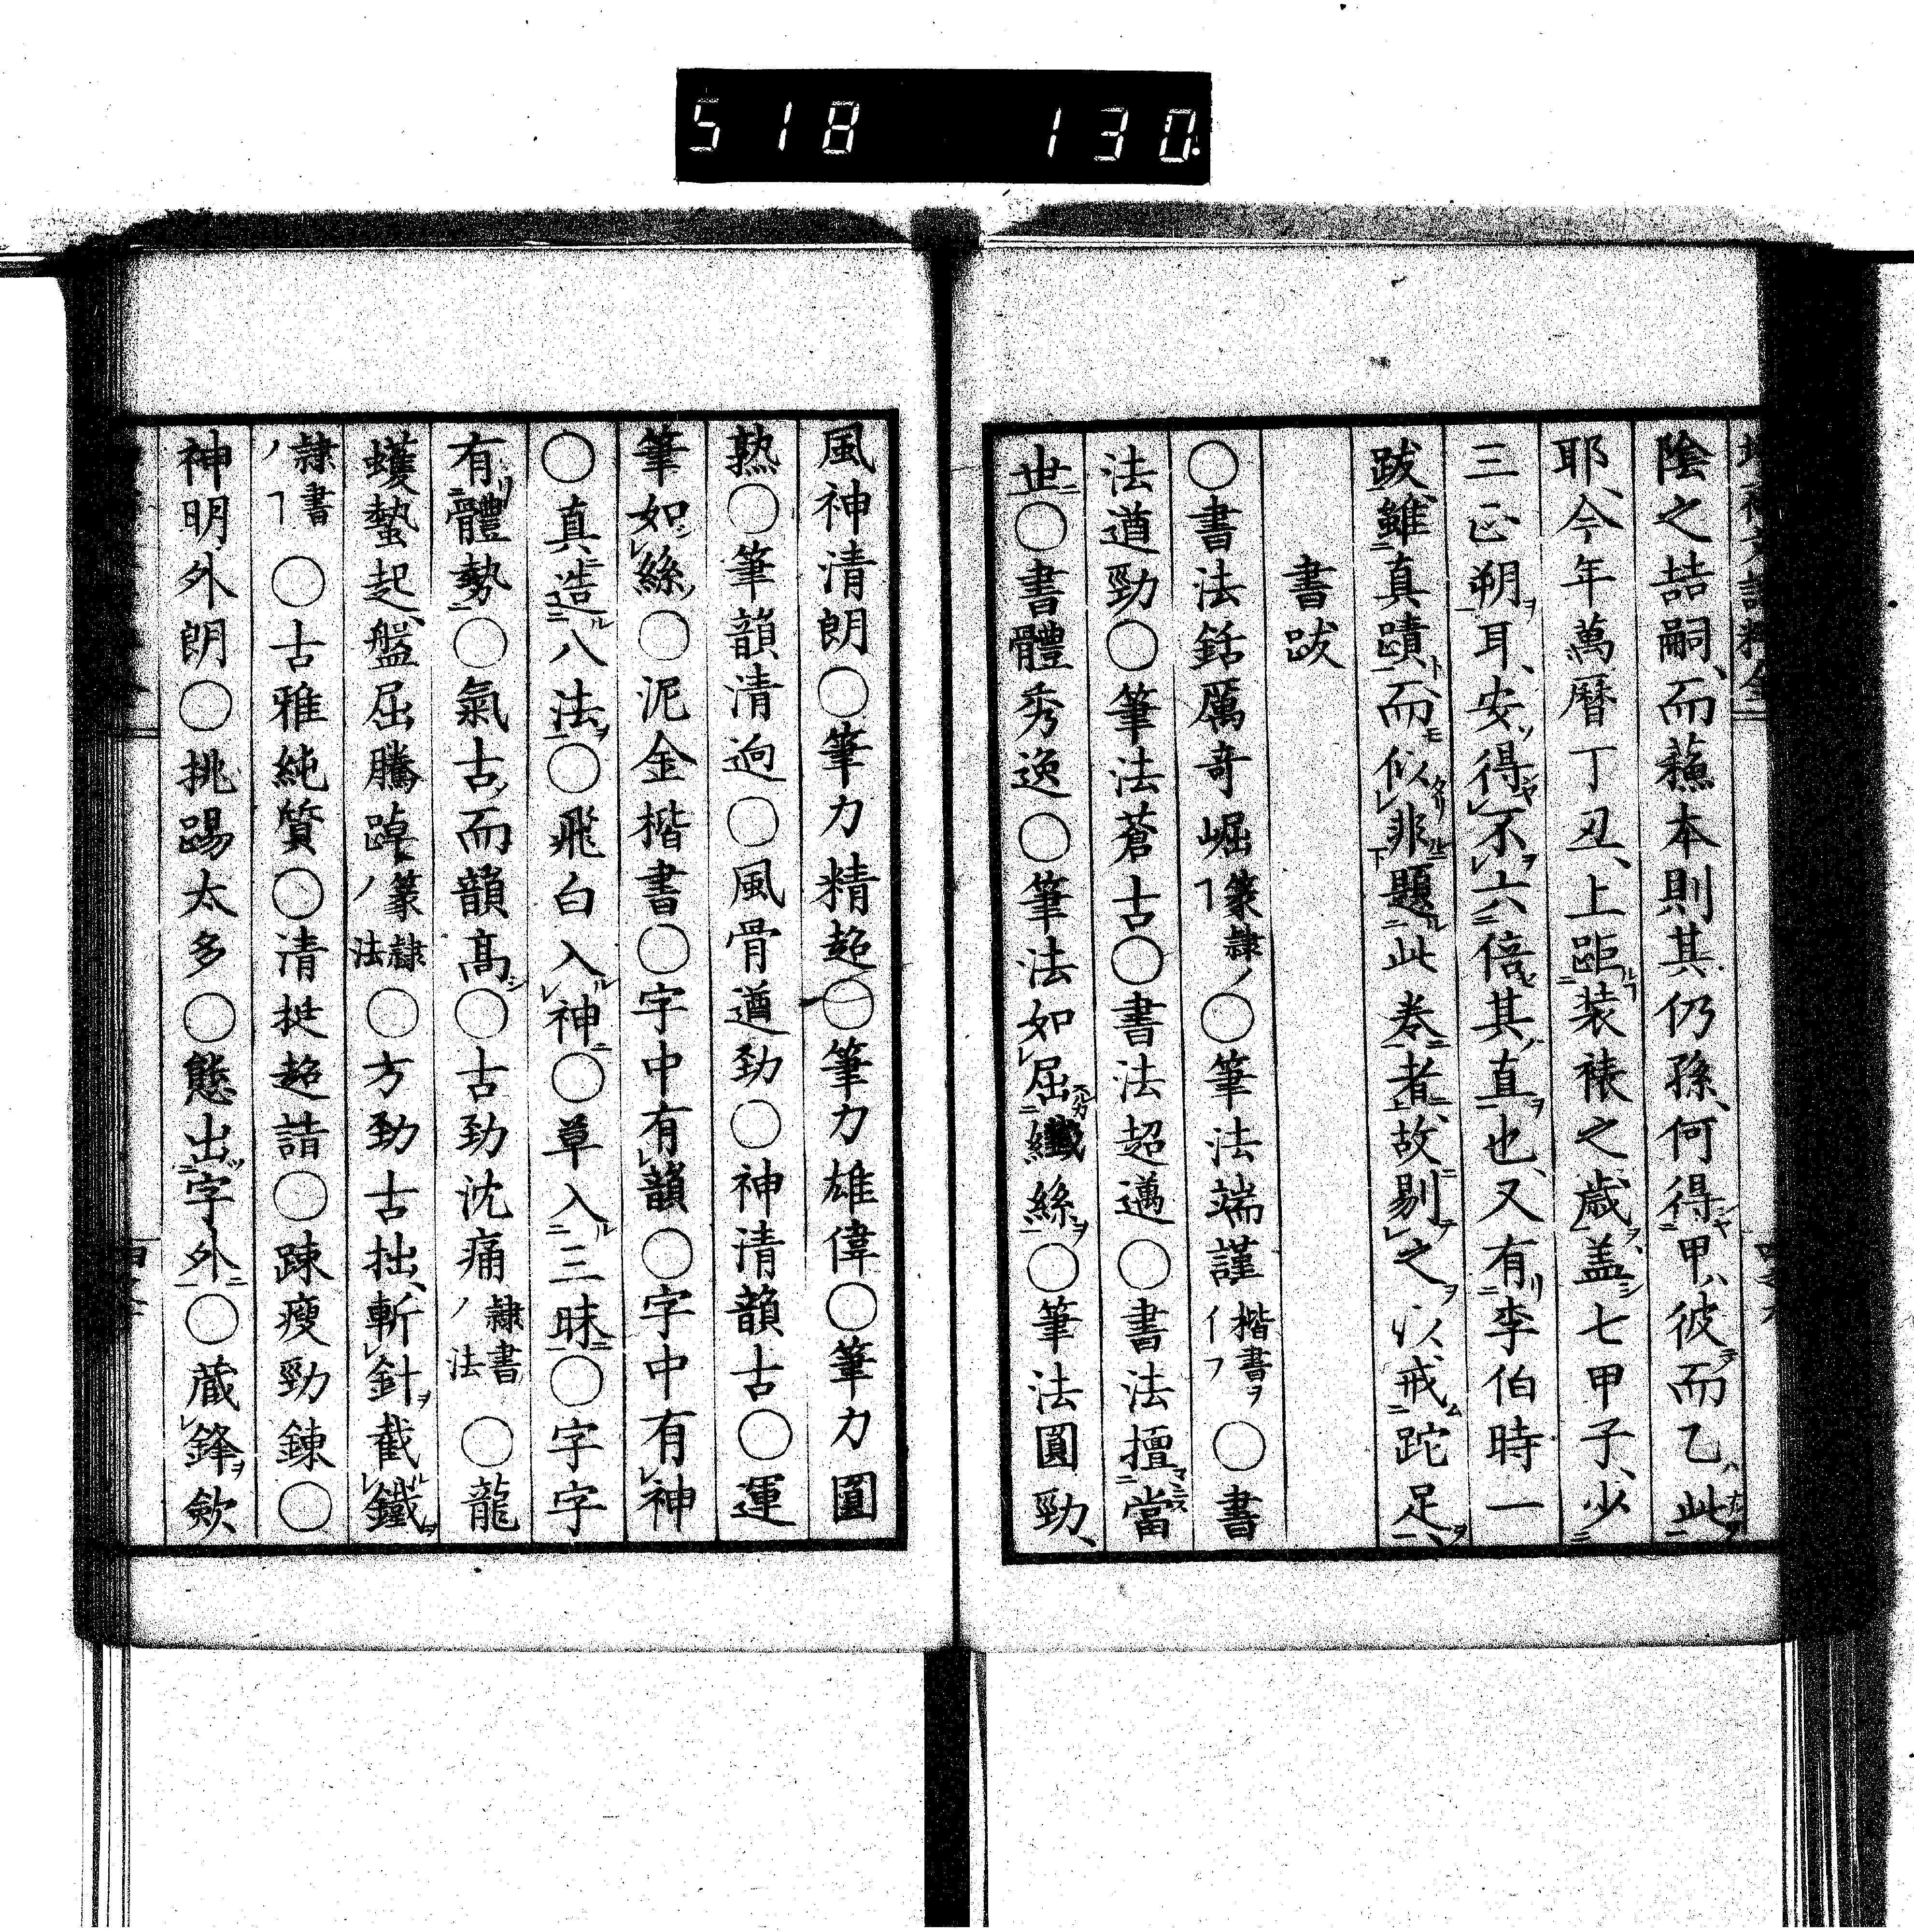 518 130
陰之喆嗣、而蘓本則其仍孫、何得甲彼而乙此
耶、今年萬曆丁丑、上距装裱之歳、盖七甲子、少
三正朔耳、安得不六倍其直也、又有李伯時一
跋雖真蹟而似非題此卷者、故剔之以戒跎足、
書跋
〇書法銛厲奇崛篆隷ノヿ〇筆法端謹楷書ヲイフ〇書
法遒勁〇筆法蒼古〇書法超邁〇書法擅當
世〇書體秀逸〇筆法如屈纖絲〇筆法圓勁、
風神清朗〇筆力精超〇筆力雄偉〇筆力圓
熟〇筆韻清逈〇風骨遒勁〇神清韻古〇運
筆如絲〇泥金楷書〇字中有韻〇字中有神
〇真造八法〇飛白入神〇草入三昧〇字字
有體勢〇氣古而韻高〇古勁沈痛隷書ノ法〇龍
蠖蟄起、盤屈騰踔篆隷ノ法〇方勁古拙、斬針截鐵
隷書ノヿ〇古雅純質〇清挺超詣〇踈瘦勁鍊〇
神明外朗〇挑踢太多〇態出字外〇蔵鋒歛